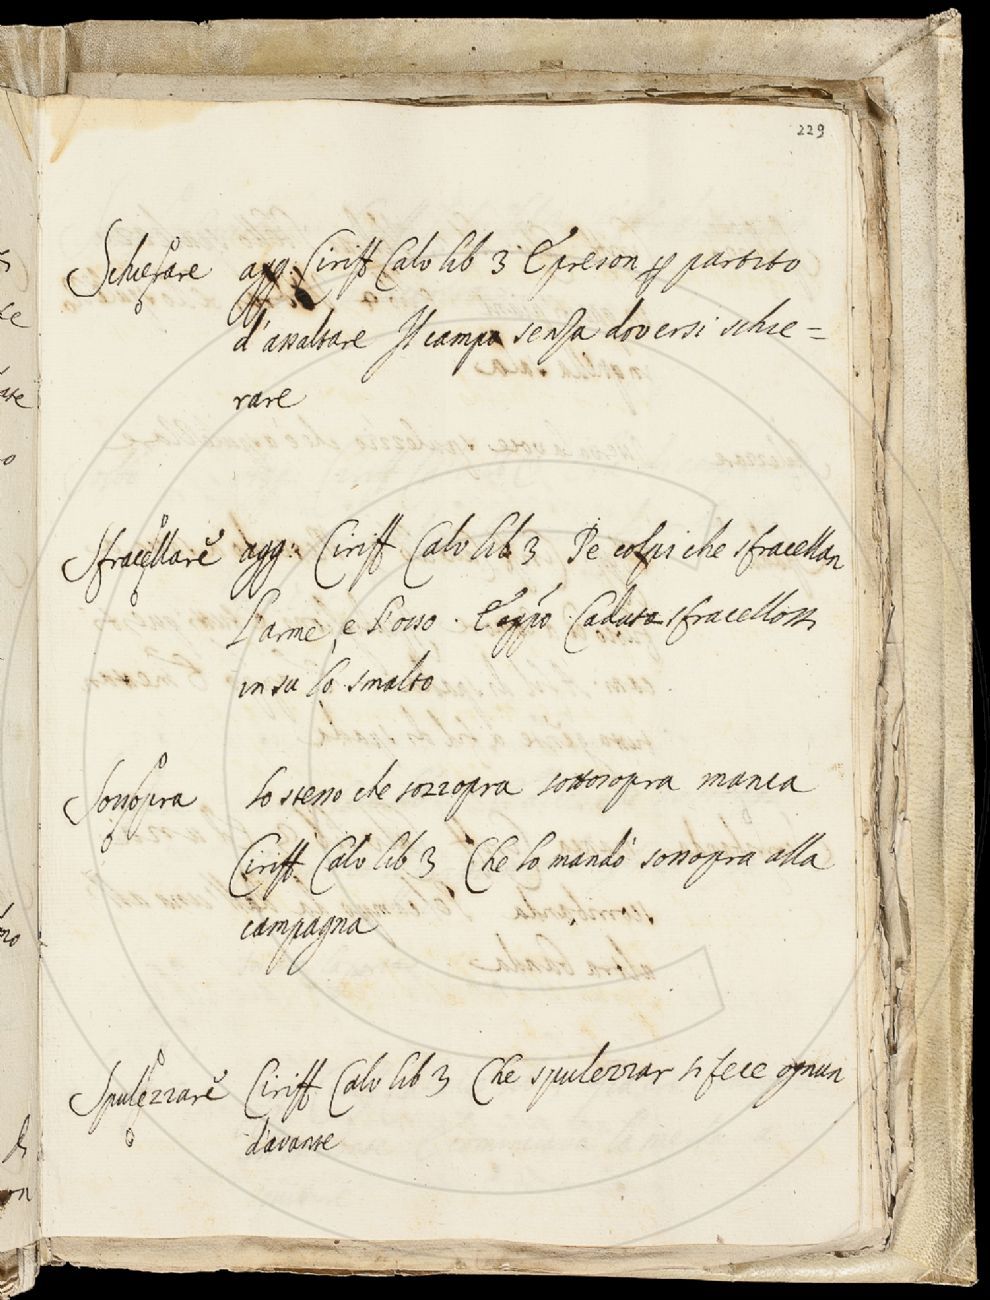 229
Schierare agg: Ciriff Calv lib 3 E preson p partito
d'assaltare Il campo senza doversi schie=
rare
Sfracellare agg: Ciriff Calv lib 3 Pe colpi che sfracellan
L'arme, e l'osso. E Caduto sfracellossi
in su lo smalto
Sossopra Lo stesso che sozzopra sottosopra manca
Ciriff Calv lib 3 Che lo mandò sossopra alla
campagna
Spulezzare Ciriff Calv lib 3 Che spulezzar si fece ognun
davante